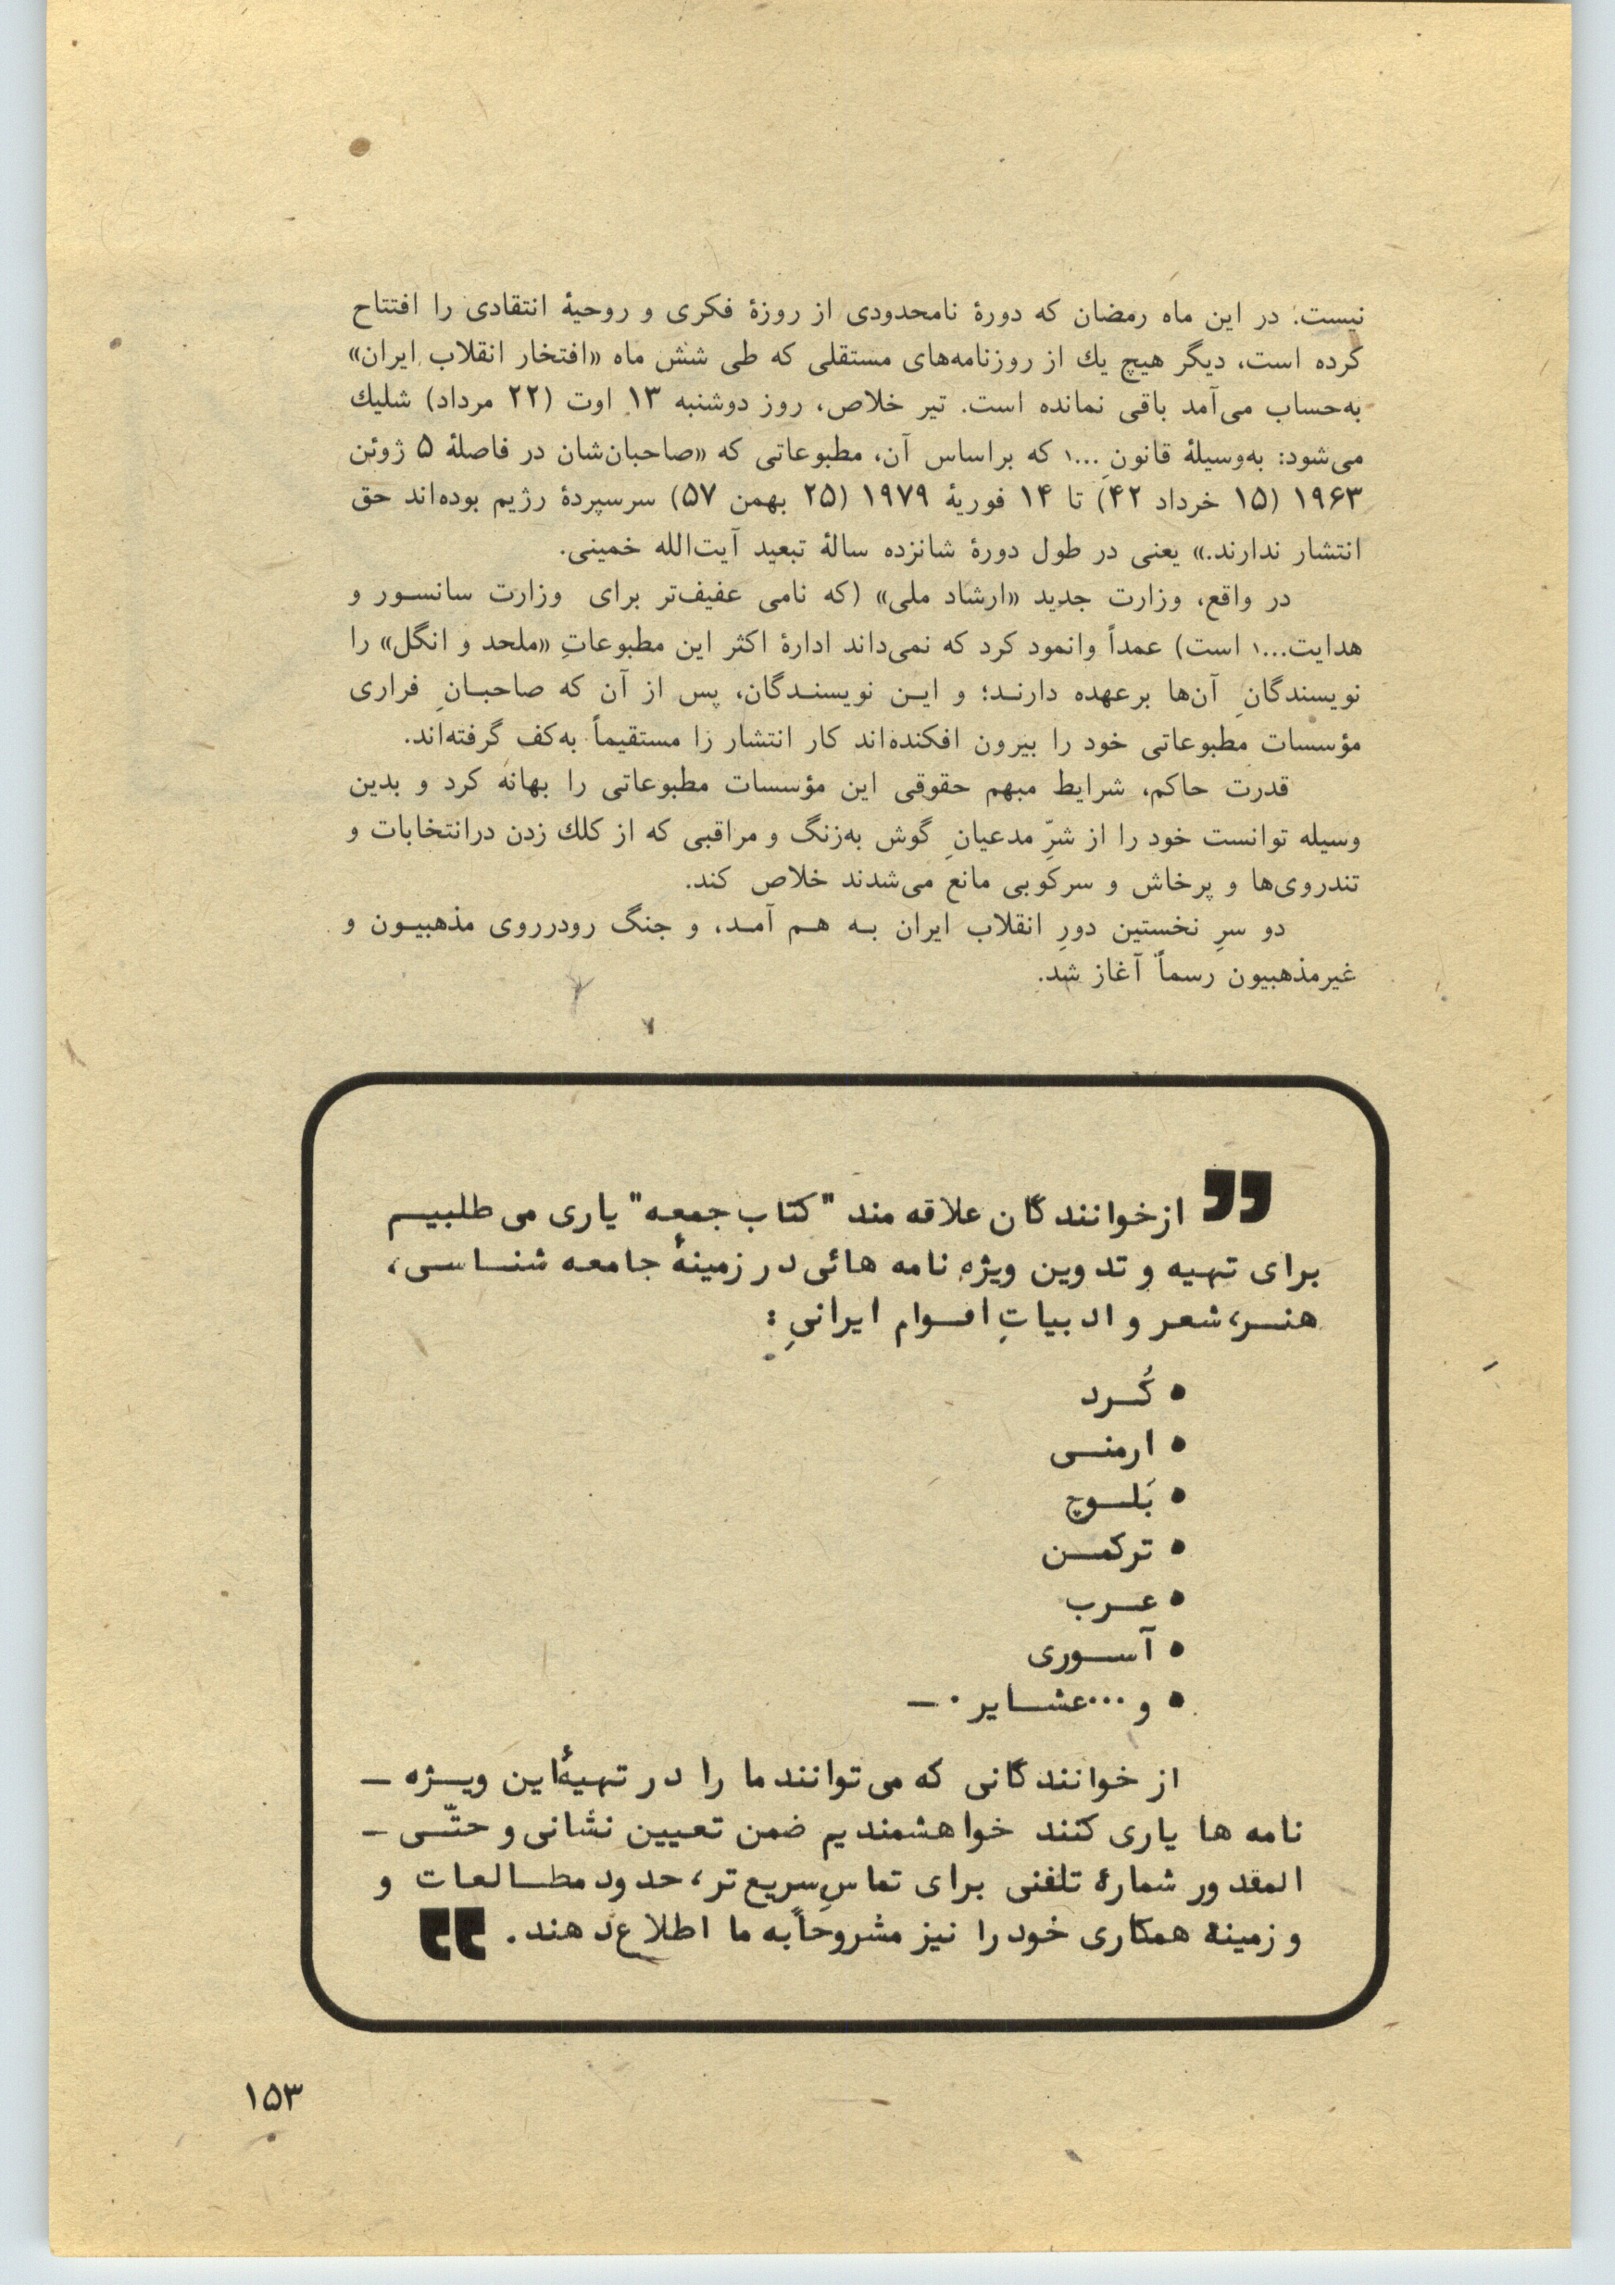 نیست. در این ماه رمضان که دورهٔ نامحدودی از روزهٔ فکری و روحیهٔ انتقادی را افتتاح
کرده است، دیگر هیچ یك از روزنامه‌های مستقلی که طی شش ماه «افتخار انقلاب ایران»
به‌حساب می‌آمد باقی نمانده است. تیر خلاص، روز دوشنبه ۱۳ اوت (۲۲ مرداد) شلیك
می‌شود: به‌وسیلهٔ قانونِ ...۱ که براساس آن، مطبوعاتی که «صاحبان‌شان در فاصلهٔ ۵ ژوئن
۱۹۶۳ (۱۵ خرداد ۴۲) تا ۱۴ فوریهٔ ۱۹۷۹ (۲۵ بهمن ۵۷) سرسپردهٔ رژیم بوده‌اند حق
انتشار ندارند.» یعنی در طول دورهٔ شانزده سالهٔ تبعید آیت‌الله خمینی.
در واقع، وزارت جدید «ارشاد ملی» (که نامی عفیف‌تر برای وزارت سانسور و
هدایت...۱ است) عمداً وانمود کرد که نمی‌داند ادارهٔ اکثر این مطبوعاتِ «ملحد و انگل» را
نویسندگانِ آن‌ها برعهده دارند؛ و این نویسندگان، پس از آن که صاحبانِ فراری
مؤسسات مطبوعاتی خود را بیرون افکنده‌اند کار انتشار را مستقیماً به‌کف گرفته‌اند.
قدرت حاکم، شرایط مبهم حقوقی این مؤسسات مطبوعاتی را بهانه کرد و بدین
وسیله توانست خود را از شرِّ مدعیانِ گوش به‌زنگ و مراقبی که از کلك زدن درانتخابات و
تندروی‌ها و پرخاش و سرکوبی مانع می‌شدند خلاص کند.
دو سرِ نخستین دورِ انقلاب ایران به هم آمد، و جنگ رودرروی مذهبیون و
غیرمذهبیون رسماً آغاز شد.
❞ ازخوانندگان علاقه مند "کتاب جمعه" یاری می طلبیم
برای تهیه و تدوین ویژه نامه هائی در زمینهٔ جامعه شناسی،
هنر، شعر و ادبیاتِ اقوام ایرانیِ :
• کُرد
• ارمنی
• بَلوچ
• ترکمن
• عرب
• آسوری
• و ...عشایر . –
از خوانندگانی که می توانند ما را در تهیهٔ این ویژه –
نامه ها یاری کنند خواهشمندیم ضمن تعیین نشانی و حتّی –
المقدور شمارهٔ تلفنی برای تماسِ سریع تر، حدود مطالعات و
و زمینهٔ همکاری خود را نیز مشروحاً به ما اطلاع دهند. ❝
۱۵۳